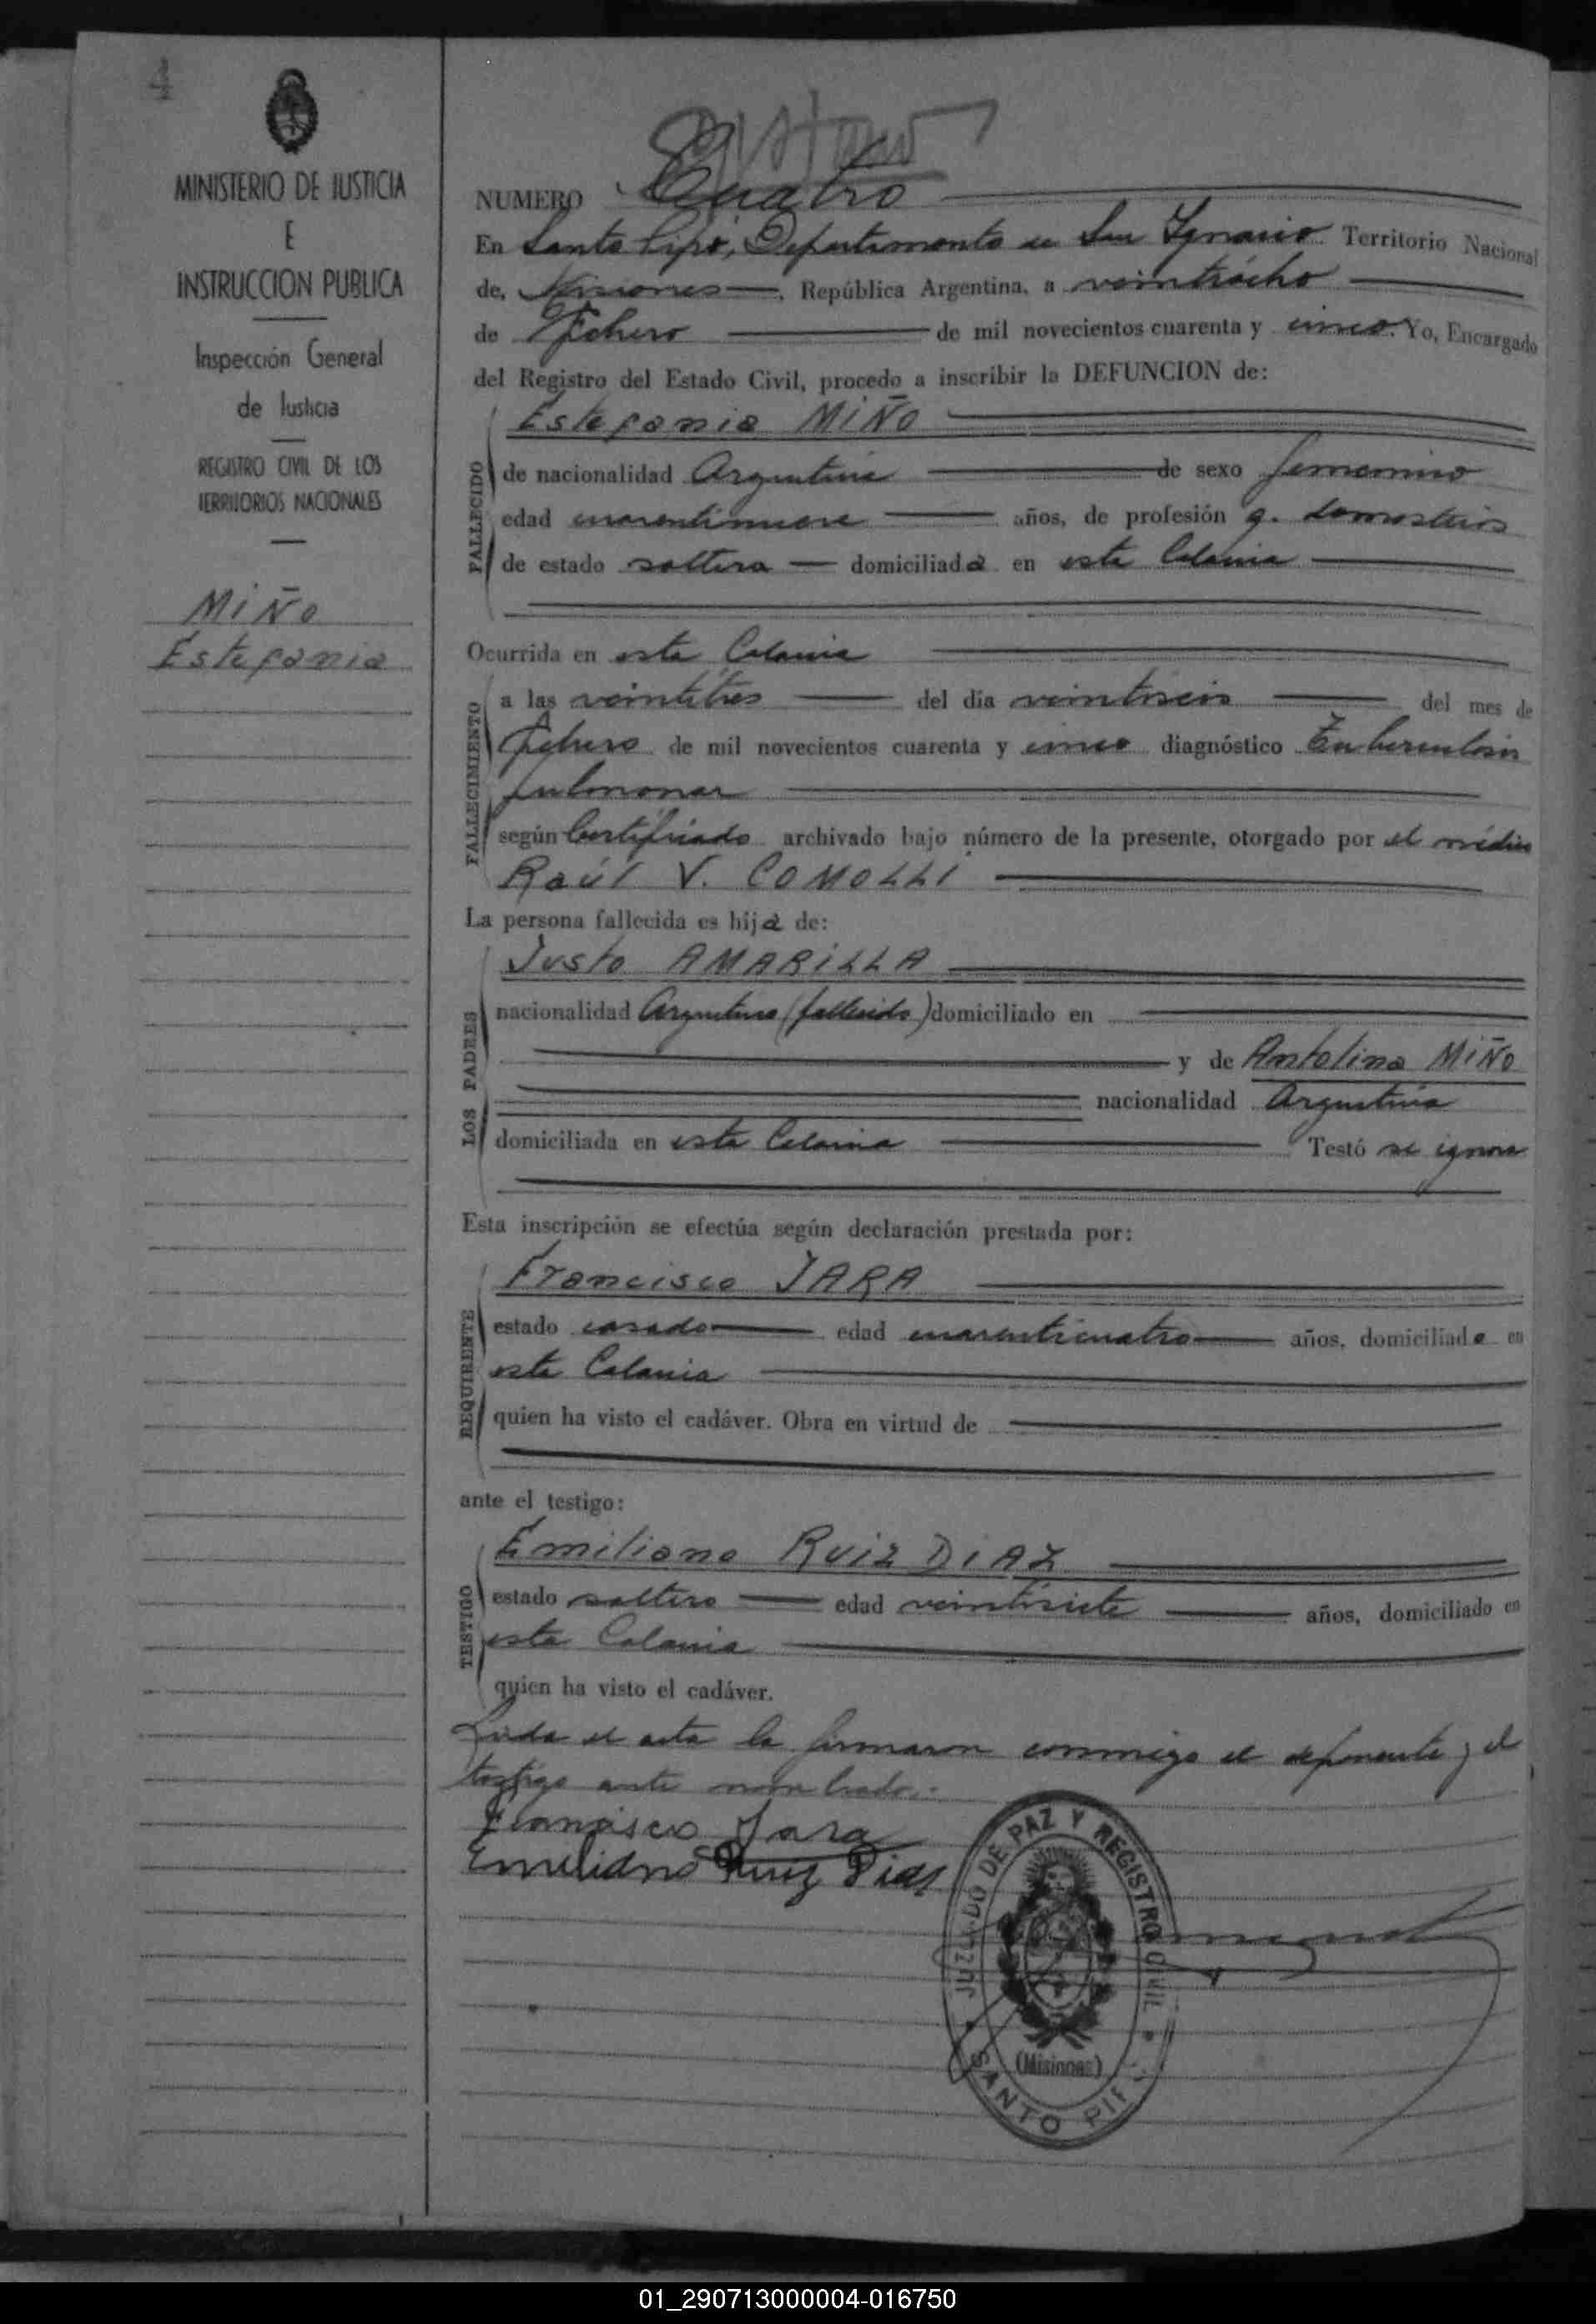 4
MINISTERIO DE JUSTICIA
E
INSTRUCCION PUBLICA
Inspección General
de Justicia
REGISTRO CIVIL DE LOS
TERRITORIOS NACIONALES
MIÑO
Estefania
NUMERO Cuatro
En Santo Pipó, Departamento de San Ignacio Territorio Nacional
de, Misiones, República Argentina, a veintiocho
de Febrero de mil novecientos cuarenta y cinco. Yo, Encargado
del Registro del Estado Civil, procedo a inscribir la DEFUNCION de:
Estefania MIÑO
FALLECIDO
de nacionalidad Argentina de sexo femenino
edad cuarentinueve años, de profesión q. domesticos
de estado soltera domiciliada en esta Colonia
Ocurrida en esta Colonia
FALLECIMIENTO
a las veintitres del día veintiseis del mes de
Febrero de mil novecientos cuarenta y cinco diagnóstico Tuberculosis
pulmonar
según Certificado archivado bajo número de la presente, otorgado por el médico
Raúl V. COMOLLI
La persona fallecida es hija de:
LOS PADRES
Justo AMARILLA
nacionalidad Argentino (fallecido) domiciliado en
y de Antolina MIÑO
nacionalidad Argentina
domiciliada en esta Colonia Testó se ignora
Esta inscripción se efectúa según declaración prestada por:
REQUIRENTE
Francisco JARA
estado casado edad cuarenticuatro años, domiciliado en
esta Colonia
quien ha visto el cadáver. Obra en virtud de
ante el testigo:
TESTIGO
Emiliano RUIZ DIAZ
estado soltero edad veintisiete años, domiciliado en
esta Colonia
quien ha visto el cadáver.
Leida el acta la firmaron conmigo el deponente y el
testigo ante nombrado.-
Francisco Jara
Emiliano Ruiz Dias
JUZGADO DE PAZ Y REGISTRO CIVIL
(Misiones)
SANTO PIPÓ
01_290713000004-016750